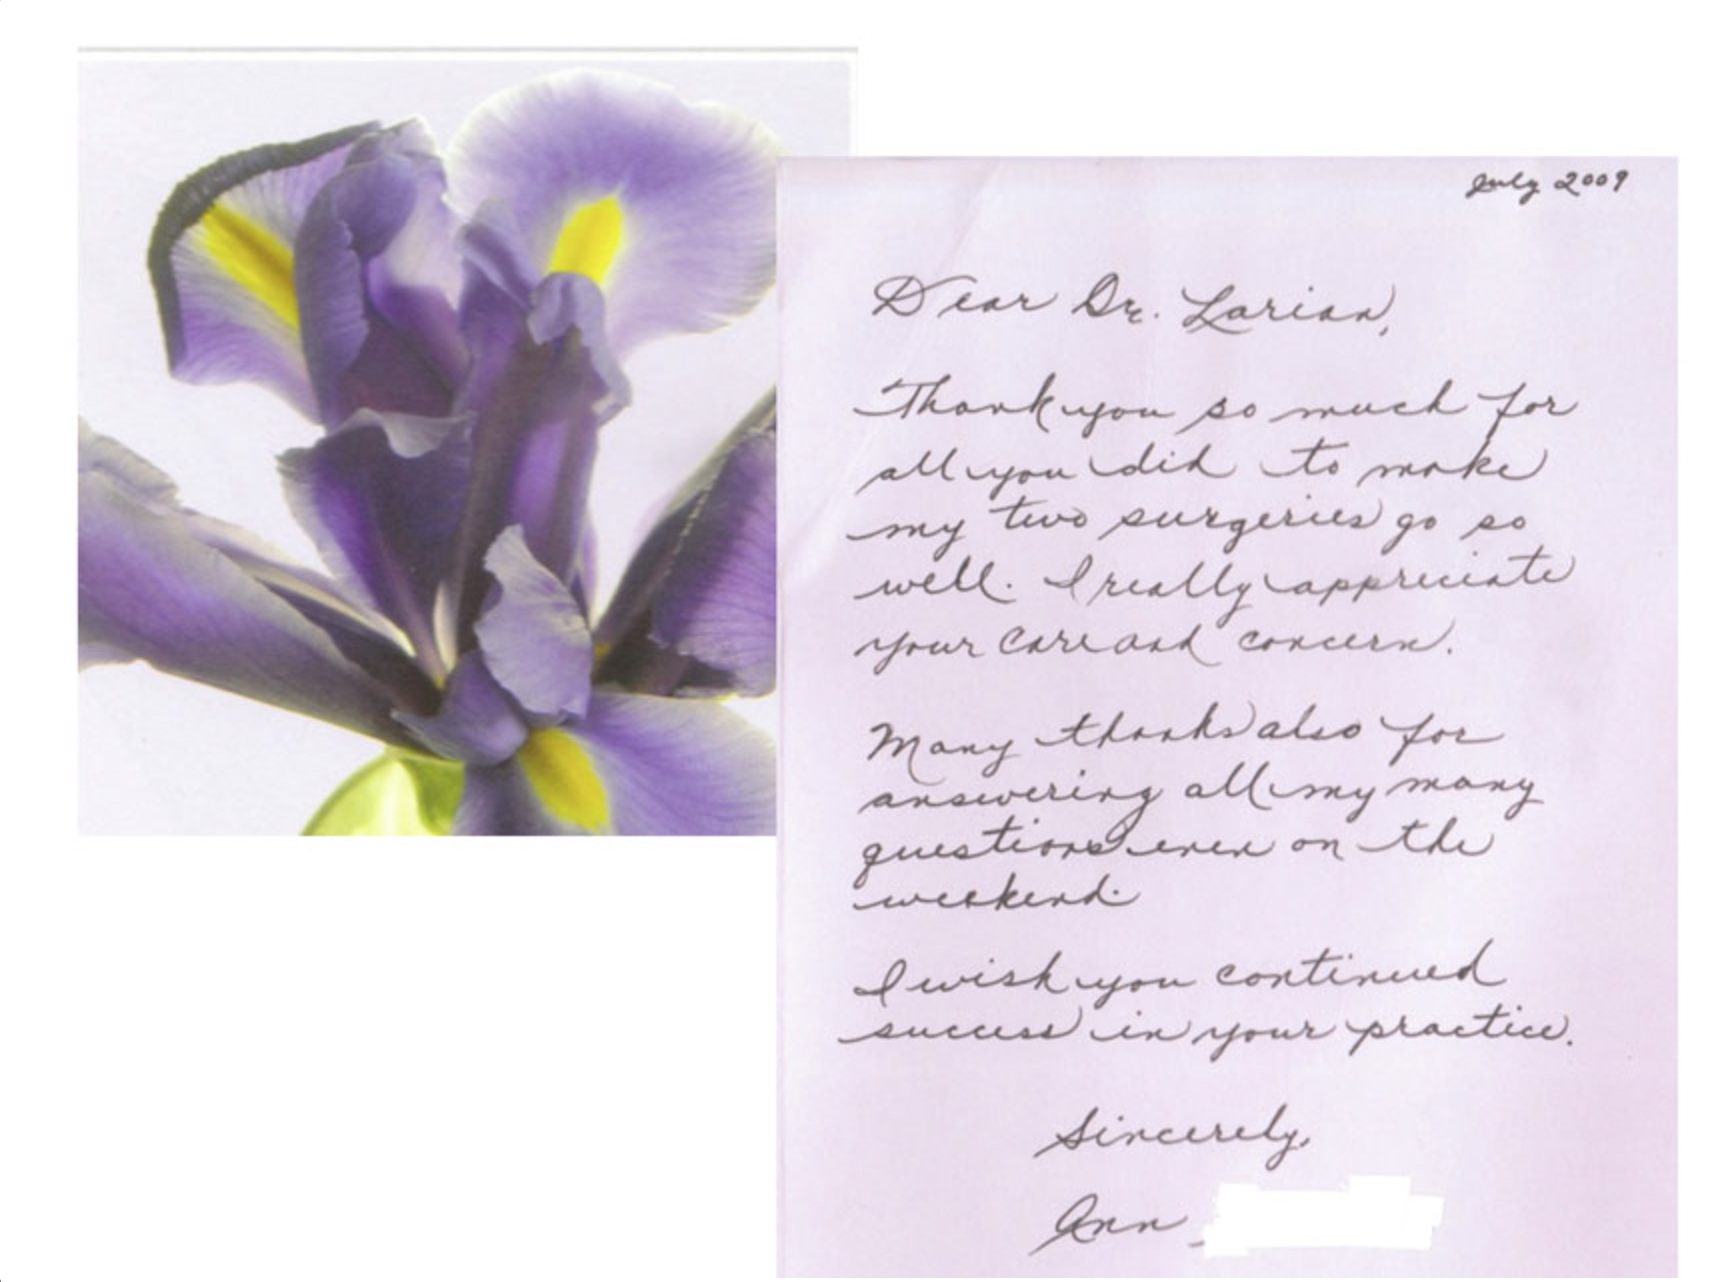 July 2009
Dear Dr. Larian,
Thank you so much for
all you did to make
my two surgeries go so
well. I really appreciate
your care and concern.
Many thanks also for
answering all my many
questions even on the
weekend.
I wish you continued
success in your practice.
Sincerely,
Ann